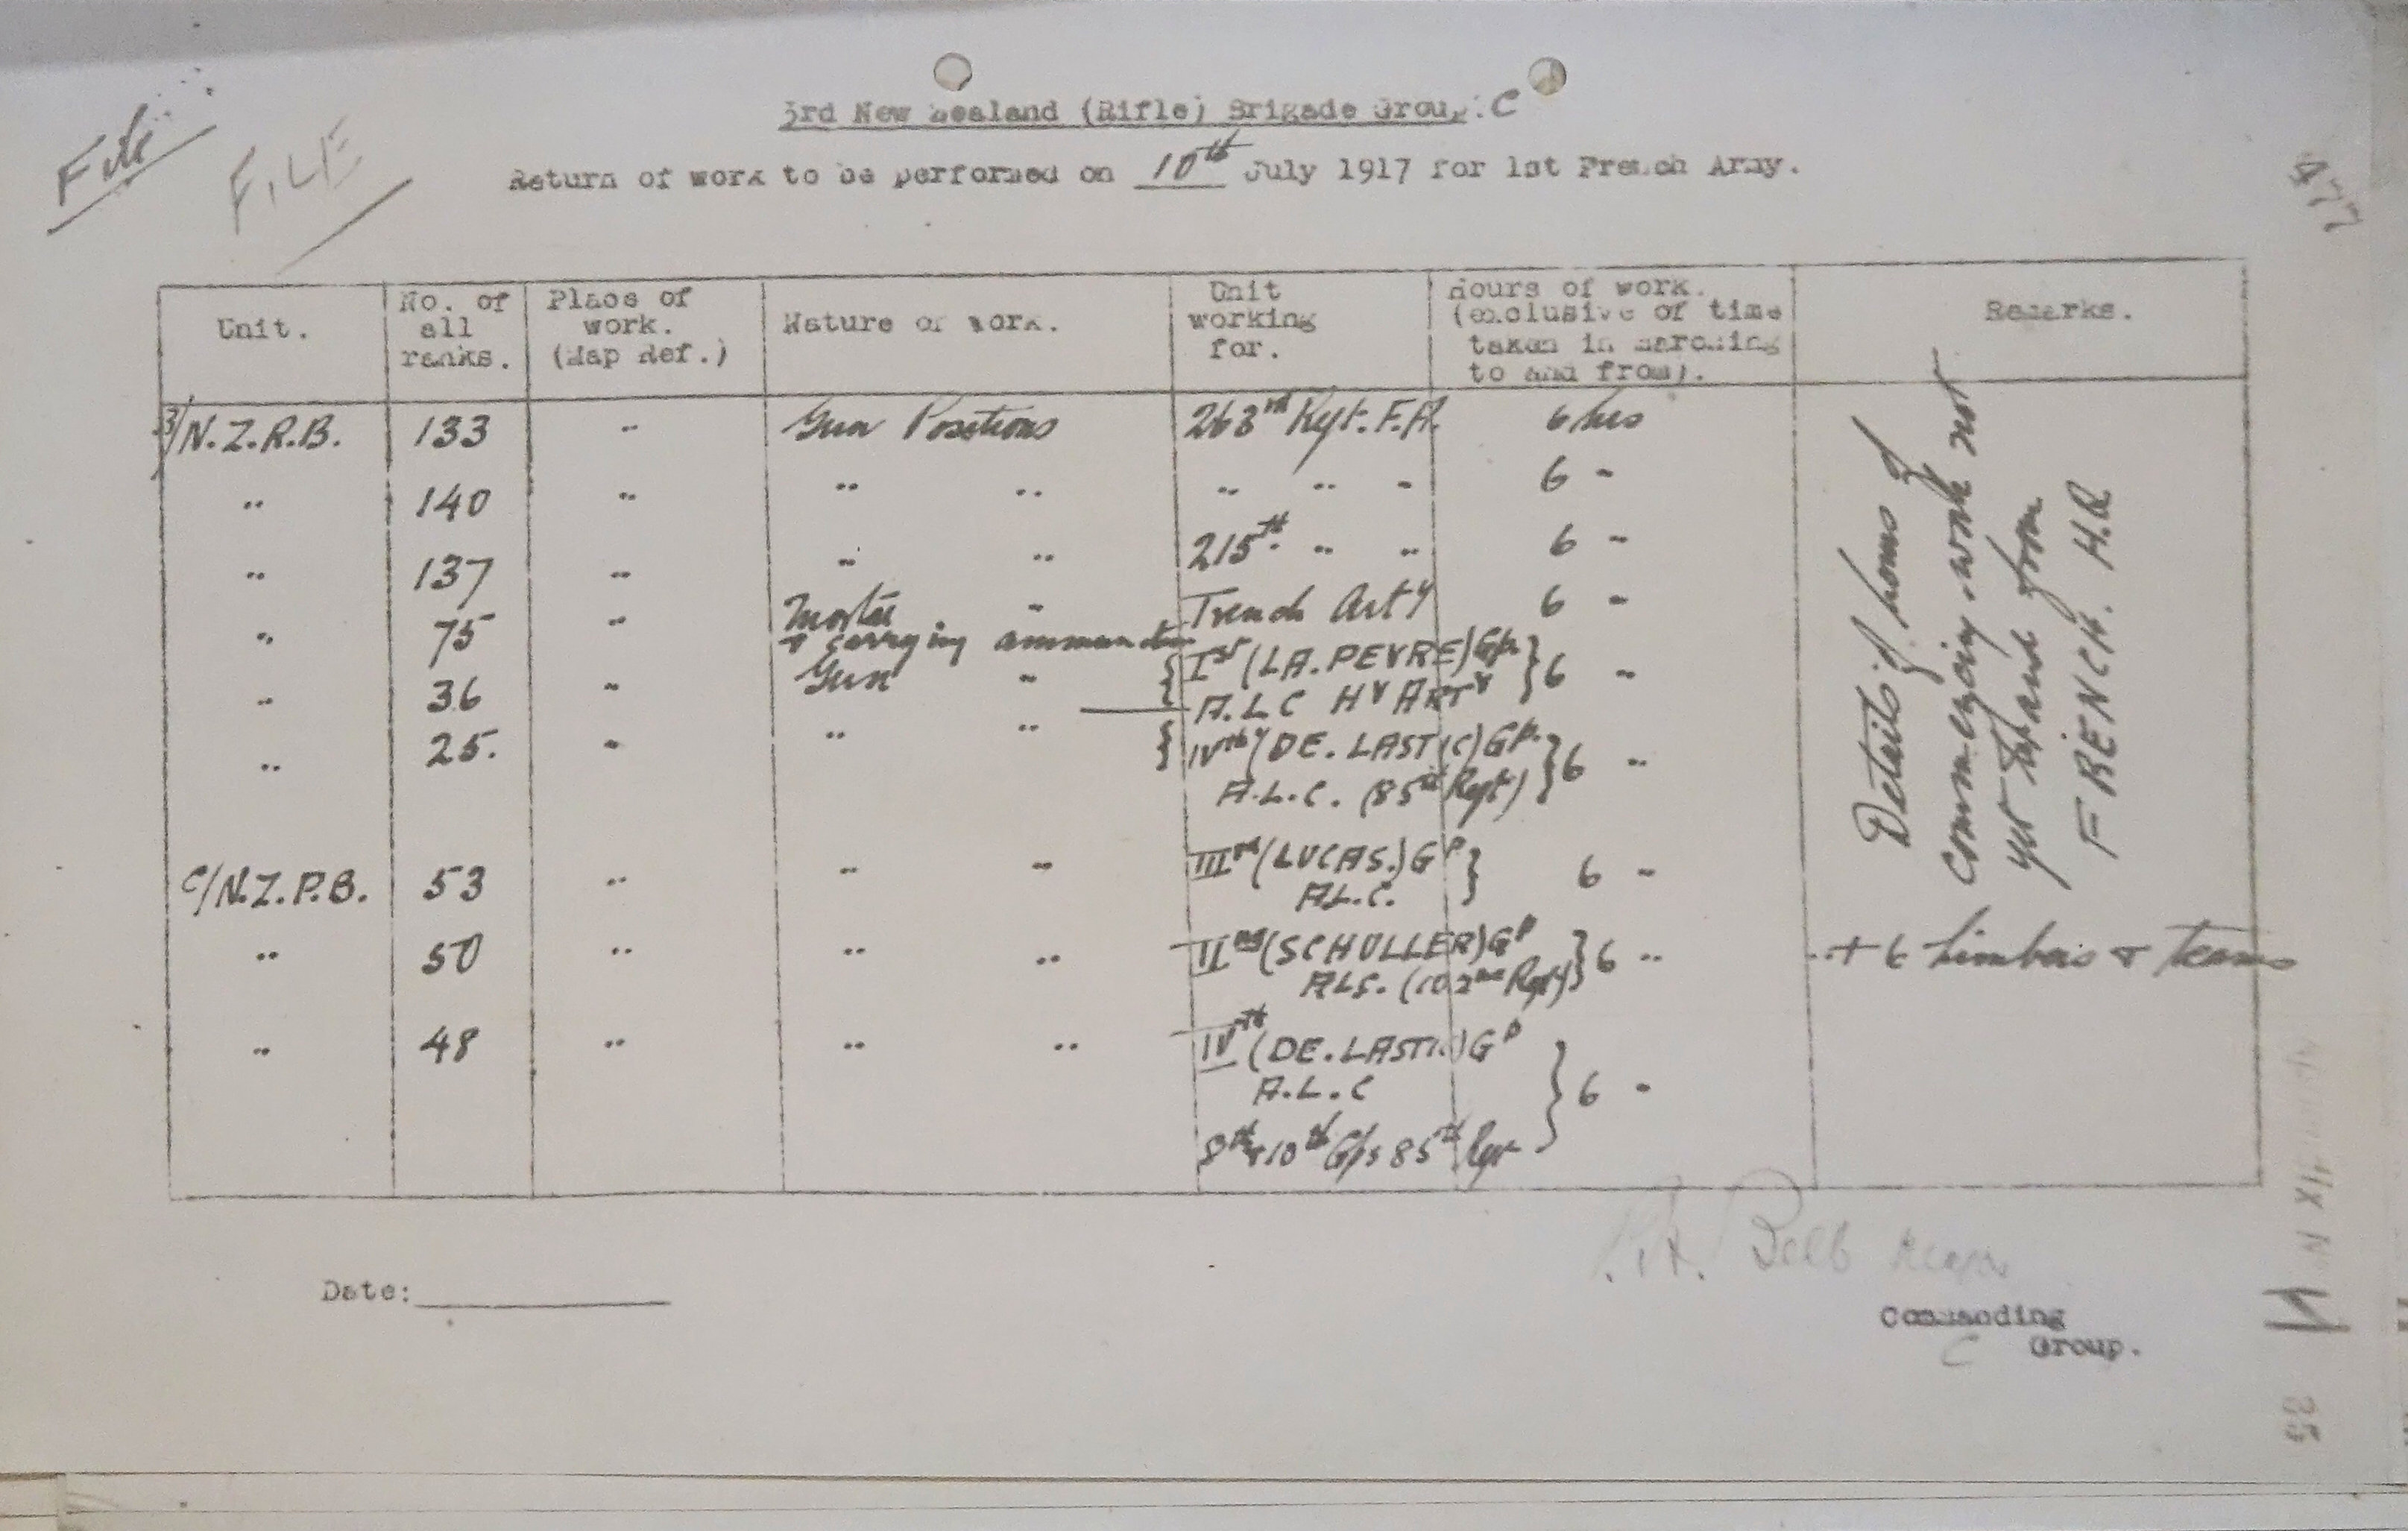 File
FILE
3rd New Zealand (Rifle) Brigade Group. C
Return of work to be performed on 10th July 1917 for 1st French Army.
477
Unit. No. of all ranks. Place of work. (Map Ref.) Nature of work. Unit working for. Hours of work. (exclusive of time taken in marching to and from). Remarks.
3/N.Z.R.B. 133 " Gun Positions 263rd Rgt. F.A. 6 hrs
" 140 " " " " " " 6 "
" 137 " " " 215th " " 6 "
" 75 " Mortar " Trench Arty 6 "
& carrying ammunition
" 36 " Gun " { Ist (LA. PEYRE) Gp. } 6 "
A.L.C HY ARTY
" 25. " " " { IVth (DE. LASTIC) Gp. } 6 "
A.L.C. (85th Rgt)
C/N.Z.P.B. 53 " " " IIIrd (LUCAS.) GP } 6 "
A.L.C.
" 50 " " " IInd (SCHULLER) GP } 6 " + 6 Limbers & teams
A.L.C. (102nd Rgt)
" 48 " " " IVTH (DE. LASTIC) GP } 6 "
A.L.C
8th & 10th Gps 85th Rgt
Details of hours of
commencing work not
yet to hand from
FRENCH. H.Q
Date:
Commanding
C Group.
35